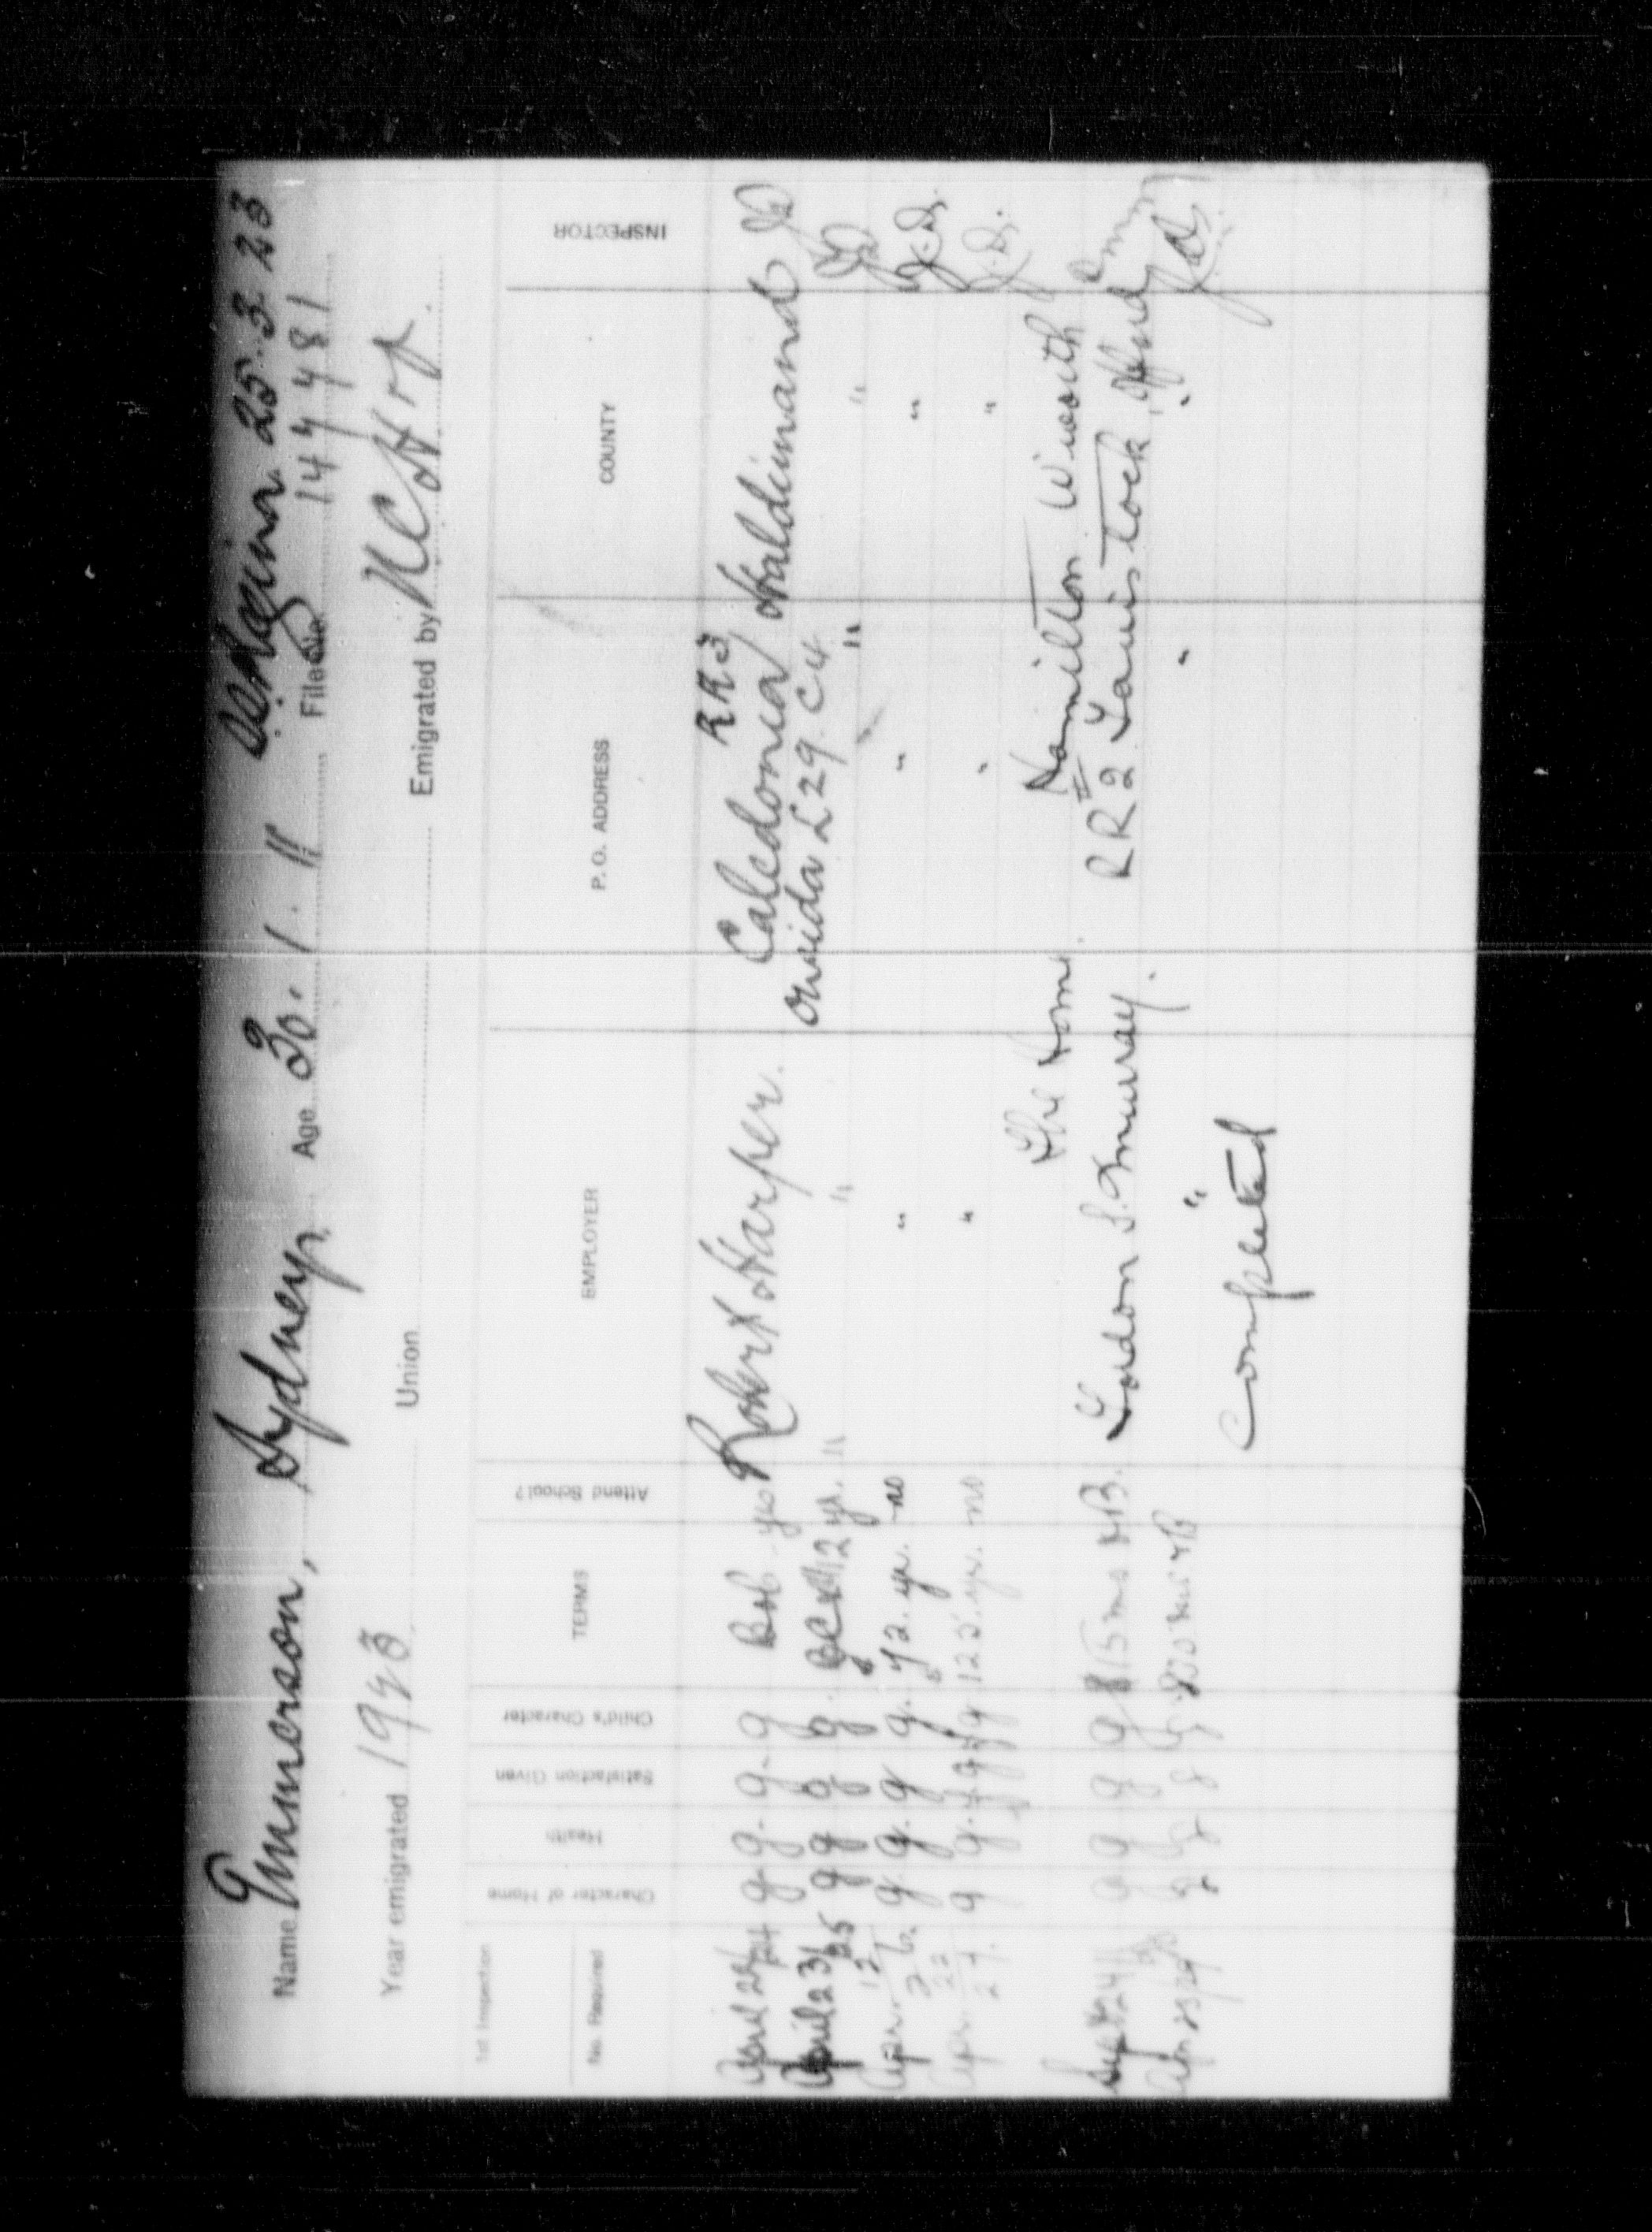 Name Emmerson, Sydney Age 30. 1. 11 SS. Regina 25. 3. 23
File No. 144481
Year emigrated 1923 Union Emigrated by N C H r f
1st Inspection
No. Required Character of Home Health Satisfaction Given Child's Character TERMS Attend School? EMPLOYER P. O. ADDRESS COUNTY INSPECTOR
RR3
April 24 g. g. g. g yes Robert Harper. Caledonia Haldimand
April 23 25 g g g g. 12 yr. " Oneida L 29. C 4 " "
Apr 12 26. g. g. g g. 72. yr. no " " "
Apr 22 27. g g. g 125. yr. no " " "
The Home. Hamilton W'worth
Sept 24 g g g g 15 mo Gordon S. Murray. RR 2 Tavistock, Oxford
" " "
Completed